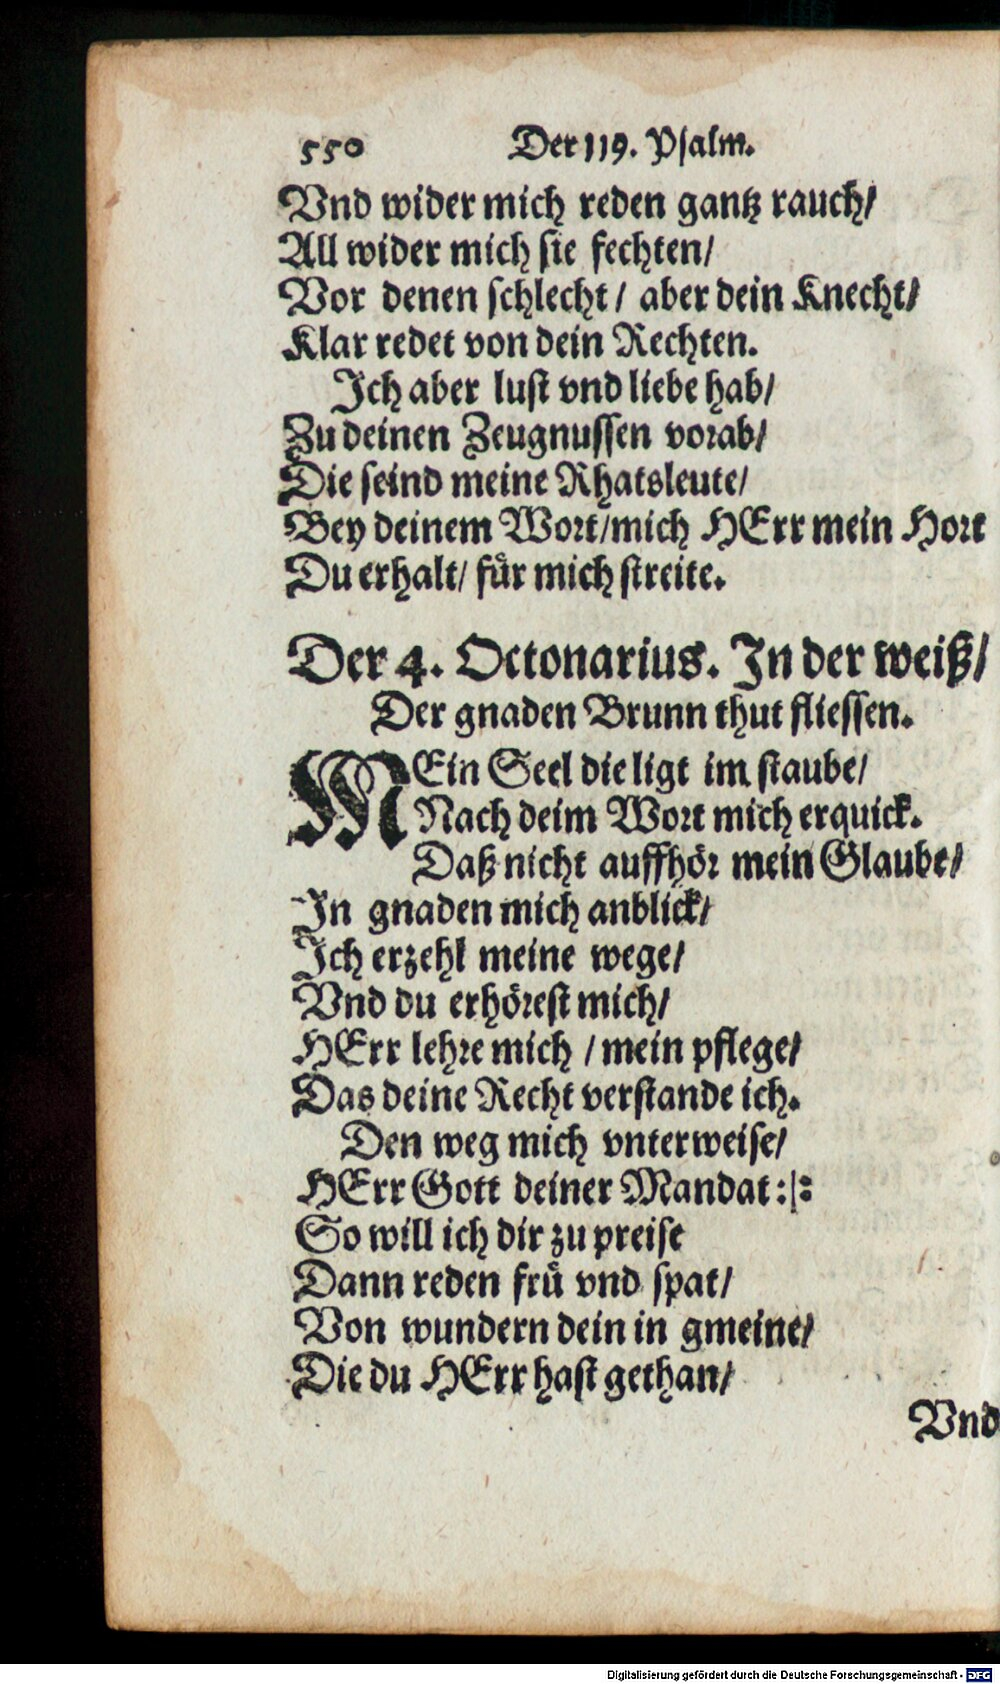 550 Der 119. Psalm.
Vnd wider mich reden gantz rauch/
All wider mich sie fechten/
Vor denen schlecht / aber dein Knecht/
Klar redet von dein Rechten.
Ich aber lust vnd liebe hab/
Zu deinen Zeugnussen vorab/
Die seind meine Rhatsleute/
Bey deinem Wort/mich HErr mein Hort
Du erhalt/ fuͤr mich streite.
Der 4. Octonarius. In der weiß/
Der gnaden Brunn thut fliessen.
MEin Seel die ligt im staube/
Nach deim Wort mich erquick.
Daß nicht auffhoͤr mein Glaube/
In gnaden mich anblick/
Ich erzehl meine wege/
Vnd du erhoͤrest mich/
HErr lehre mich / mein pflege/
Das deine Recht verstande ich.
Den weg mich vnterweise/
HErr Gott deiner Mandat :|:
So will ich dir zu preise
Dann reden fruͤ vnd spat/
Von wundern dein in gmeine/
Die du HErr hast gethan/
Vnd
Digitalisierung gefördert durch die Deutsche Forschungsgemeinschaft - DFG